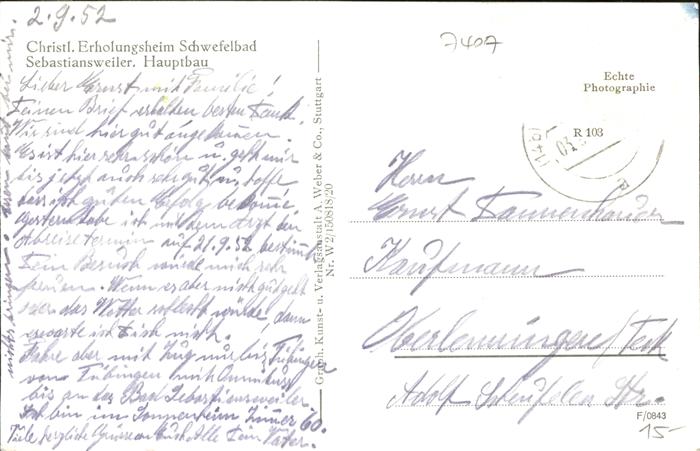 2.9.52
Christl. Erholungsheim Schwefelbad
Sebastiansweiler. Hauptbau
Lieber Ernst mit Familie!
Deinen Brief erhalten besten Dank.
Wir sind hier gut angekommen.
Es ist hier sehr schön u. geht mir
bis jetzt auch sehr gut u. hoffe
das ich guten Erfolg bekomme
gestern habe ich mit dem Arzt den
Abreisetermin auf 21.9.52 bestimmt
Dein Besuch würde mich sehr
freuen. Wenn es aber nicht gut geht
oder das Wetter schlecht würde, dann
erwarte ich Dich nicht.
Fahre aber mit Zug nur bis Tübingen
von Tübingen mit Omnibus
bis an das Bad Sebastiansweiler.
Ich bin im Sonnenheim Zimmer 60.
Viele herzliche Grüsse an Euch Alle Dein Vater.
nichts bringen.
Graph. Kunst- u. Verlagsanstalt A. Weber & Co., Stuttgart
Nr. W 2/150818/20
7407
Echte
Photographie
R 103
Herrn
Ernst Dannenhauer
Kaufmann
Oberlenningen/Teck
Adolf Scheufelen Str.
F/0843
15-